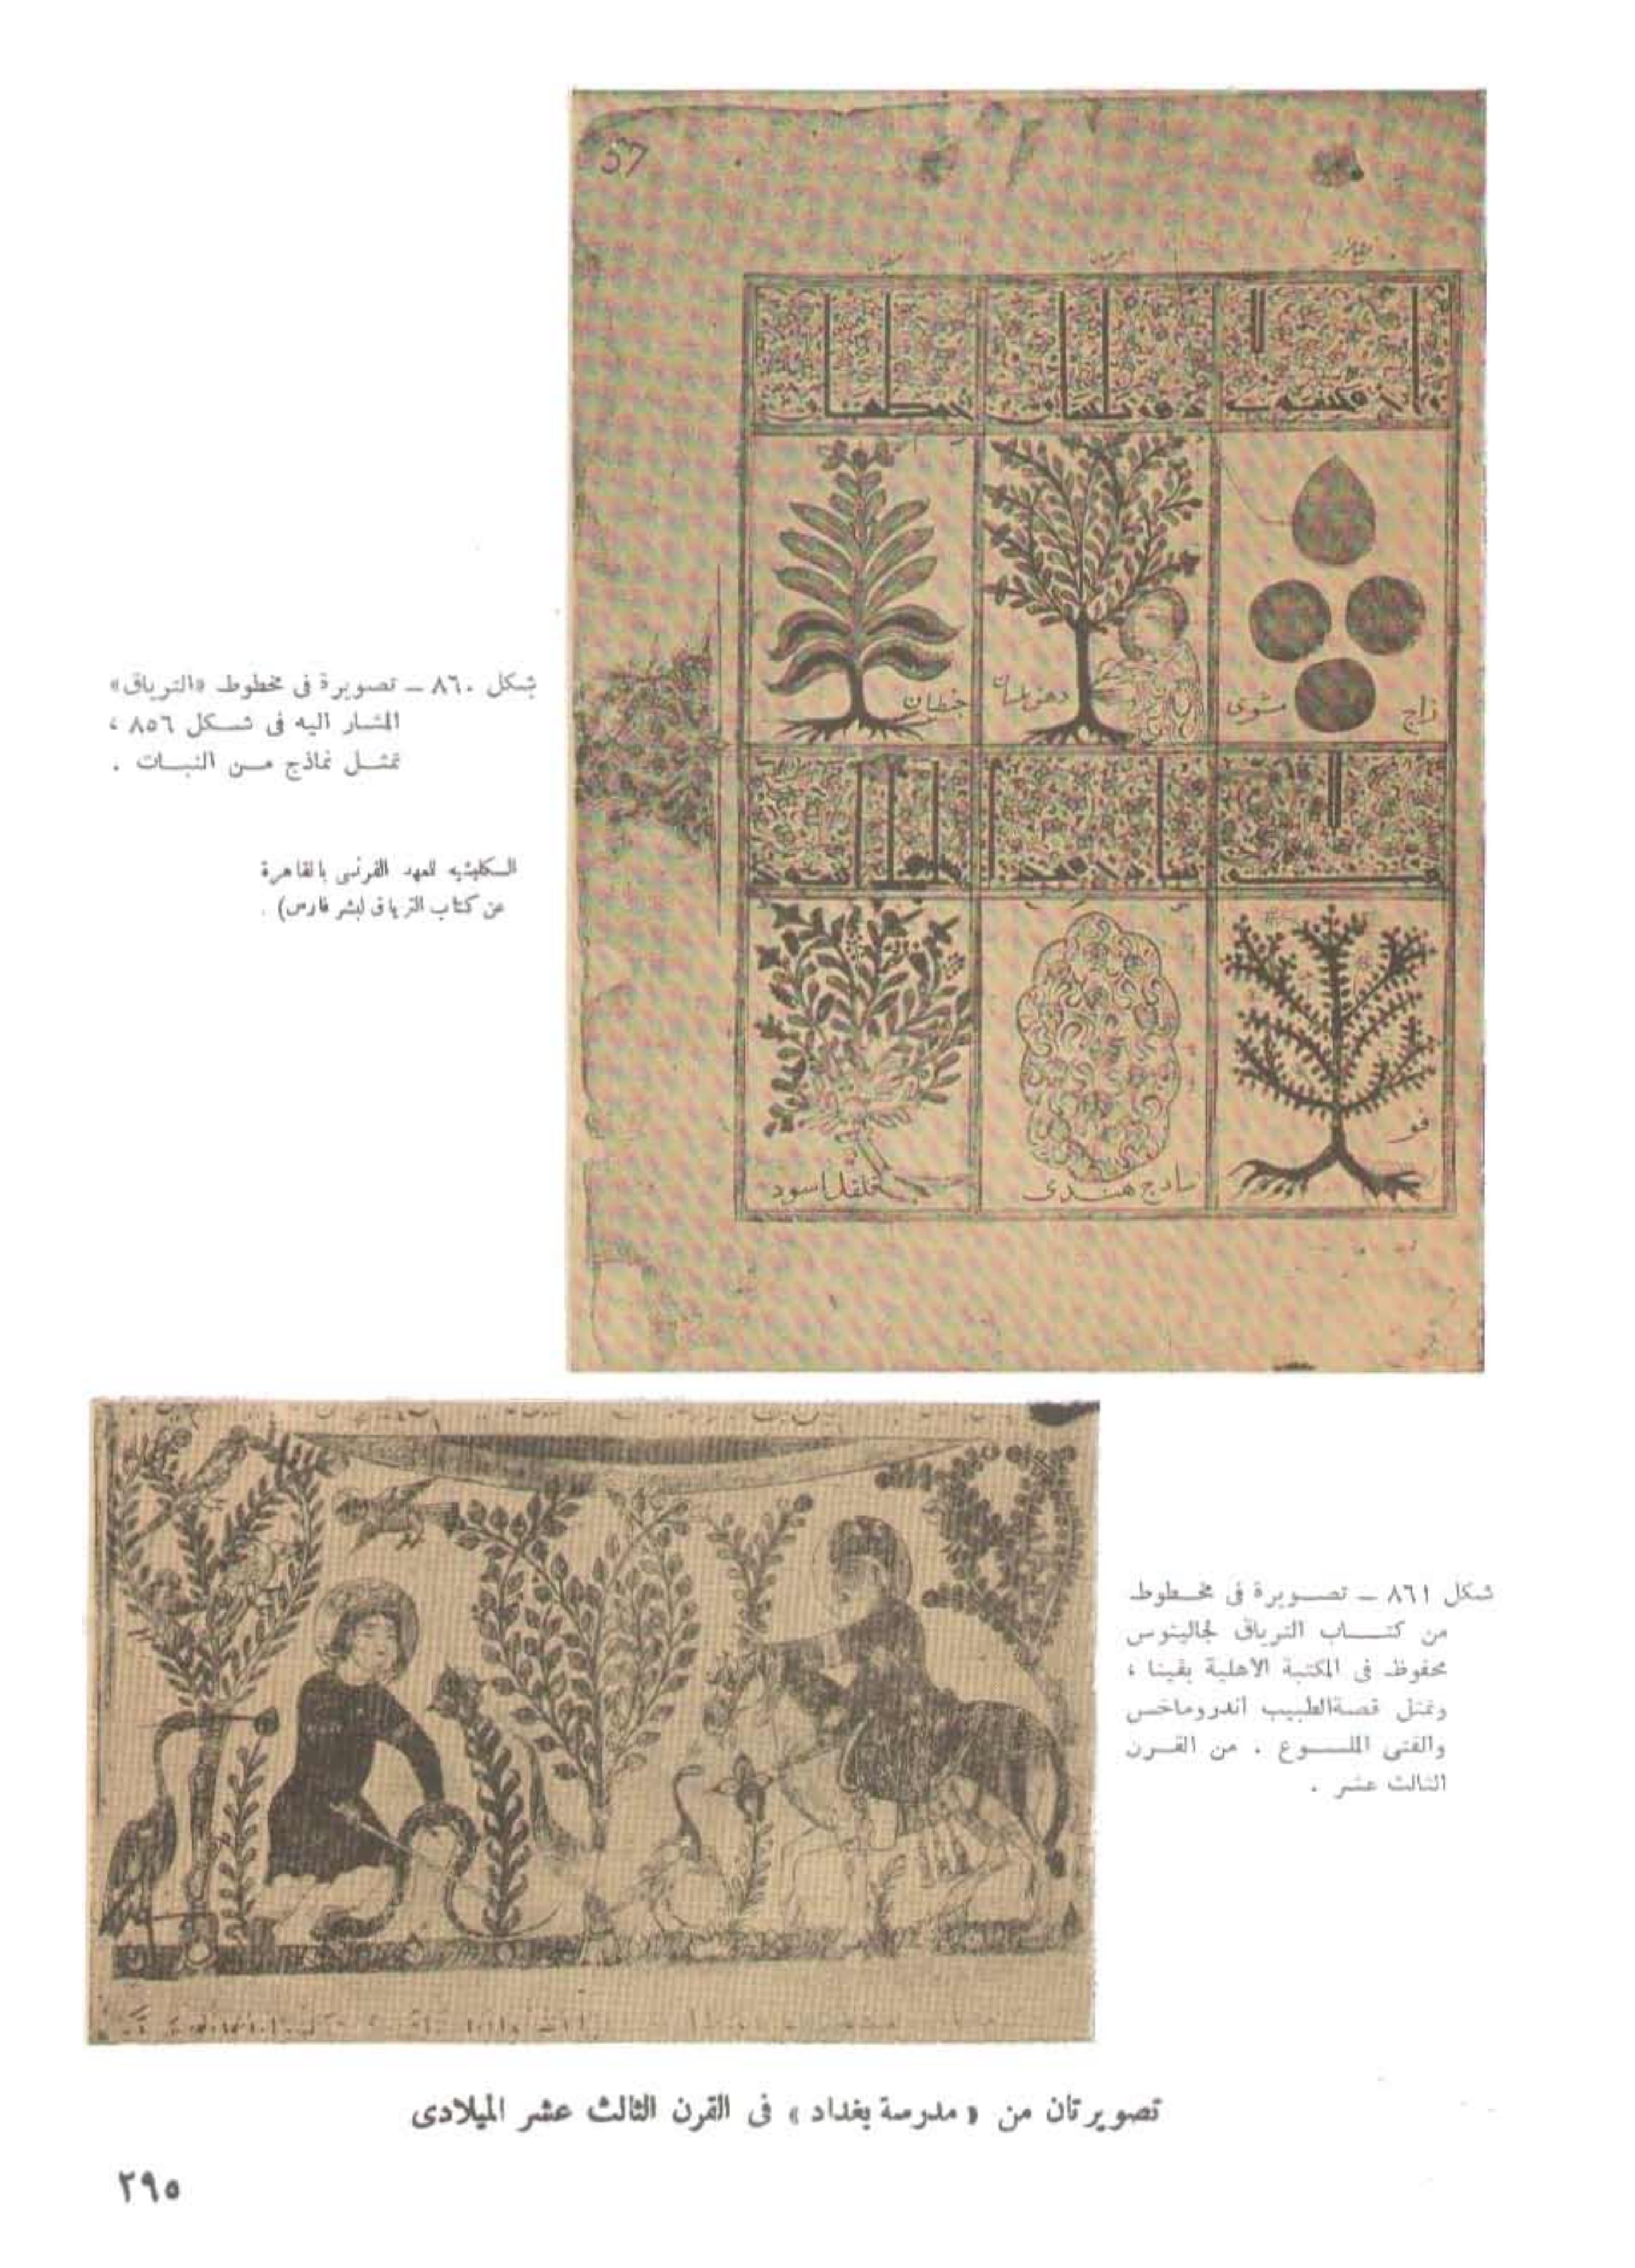 57
زاج
مشوى
دهن بلسان
جنطيان
فو
سادج هندى
فلفل اسود
شكل ٨٦٠ ــ تصويرة فى مخطوط «الترياق»
المشار اليه فى شكل ٨٥٦ ،
تمثل نماذج من النبات .
السكليشيه للمعهد الفرنسى بالقاهرة
عن كتاب الترياق لبشر فارس) .
شكل ٨٦١ ــ تصويرة فى مخطوط
من كتاب الترياق لجالينوس
محفوظ فى المكتبة الاهلية بڤينا ،
وتمثل قصة الطبيب أندروماخس
والفتى الملسوع . من القرن
الثالث عشر .
تصويرتان من « مدرسة بغداد » فى القرن الثالث عشر الميلادى
٢٩٥